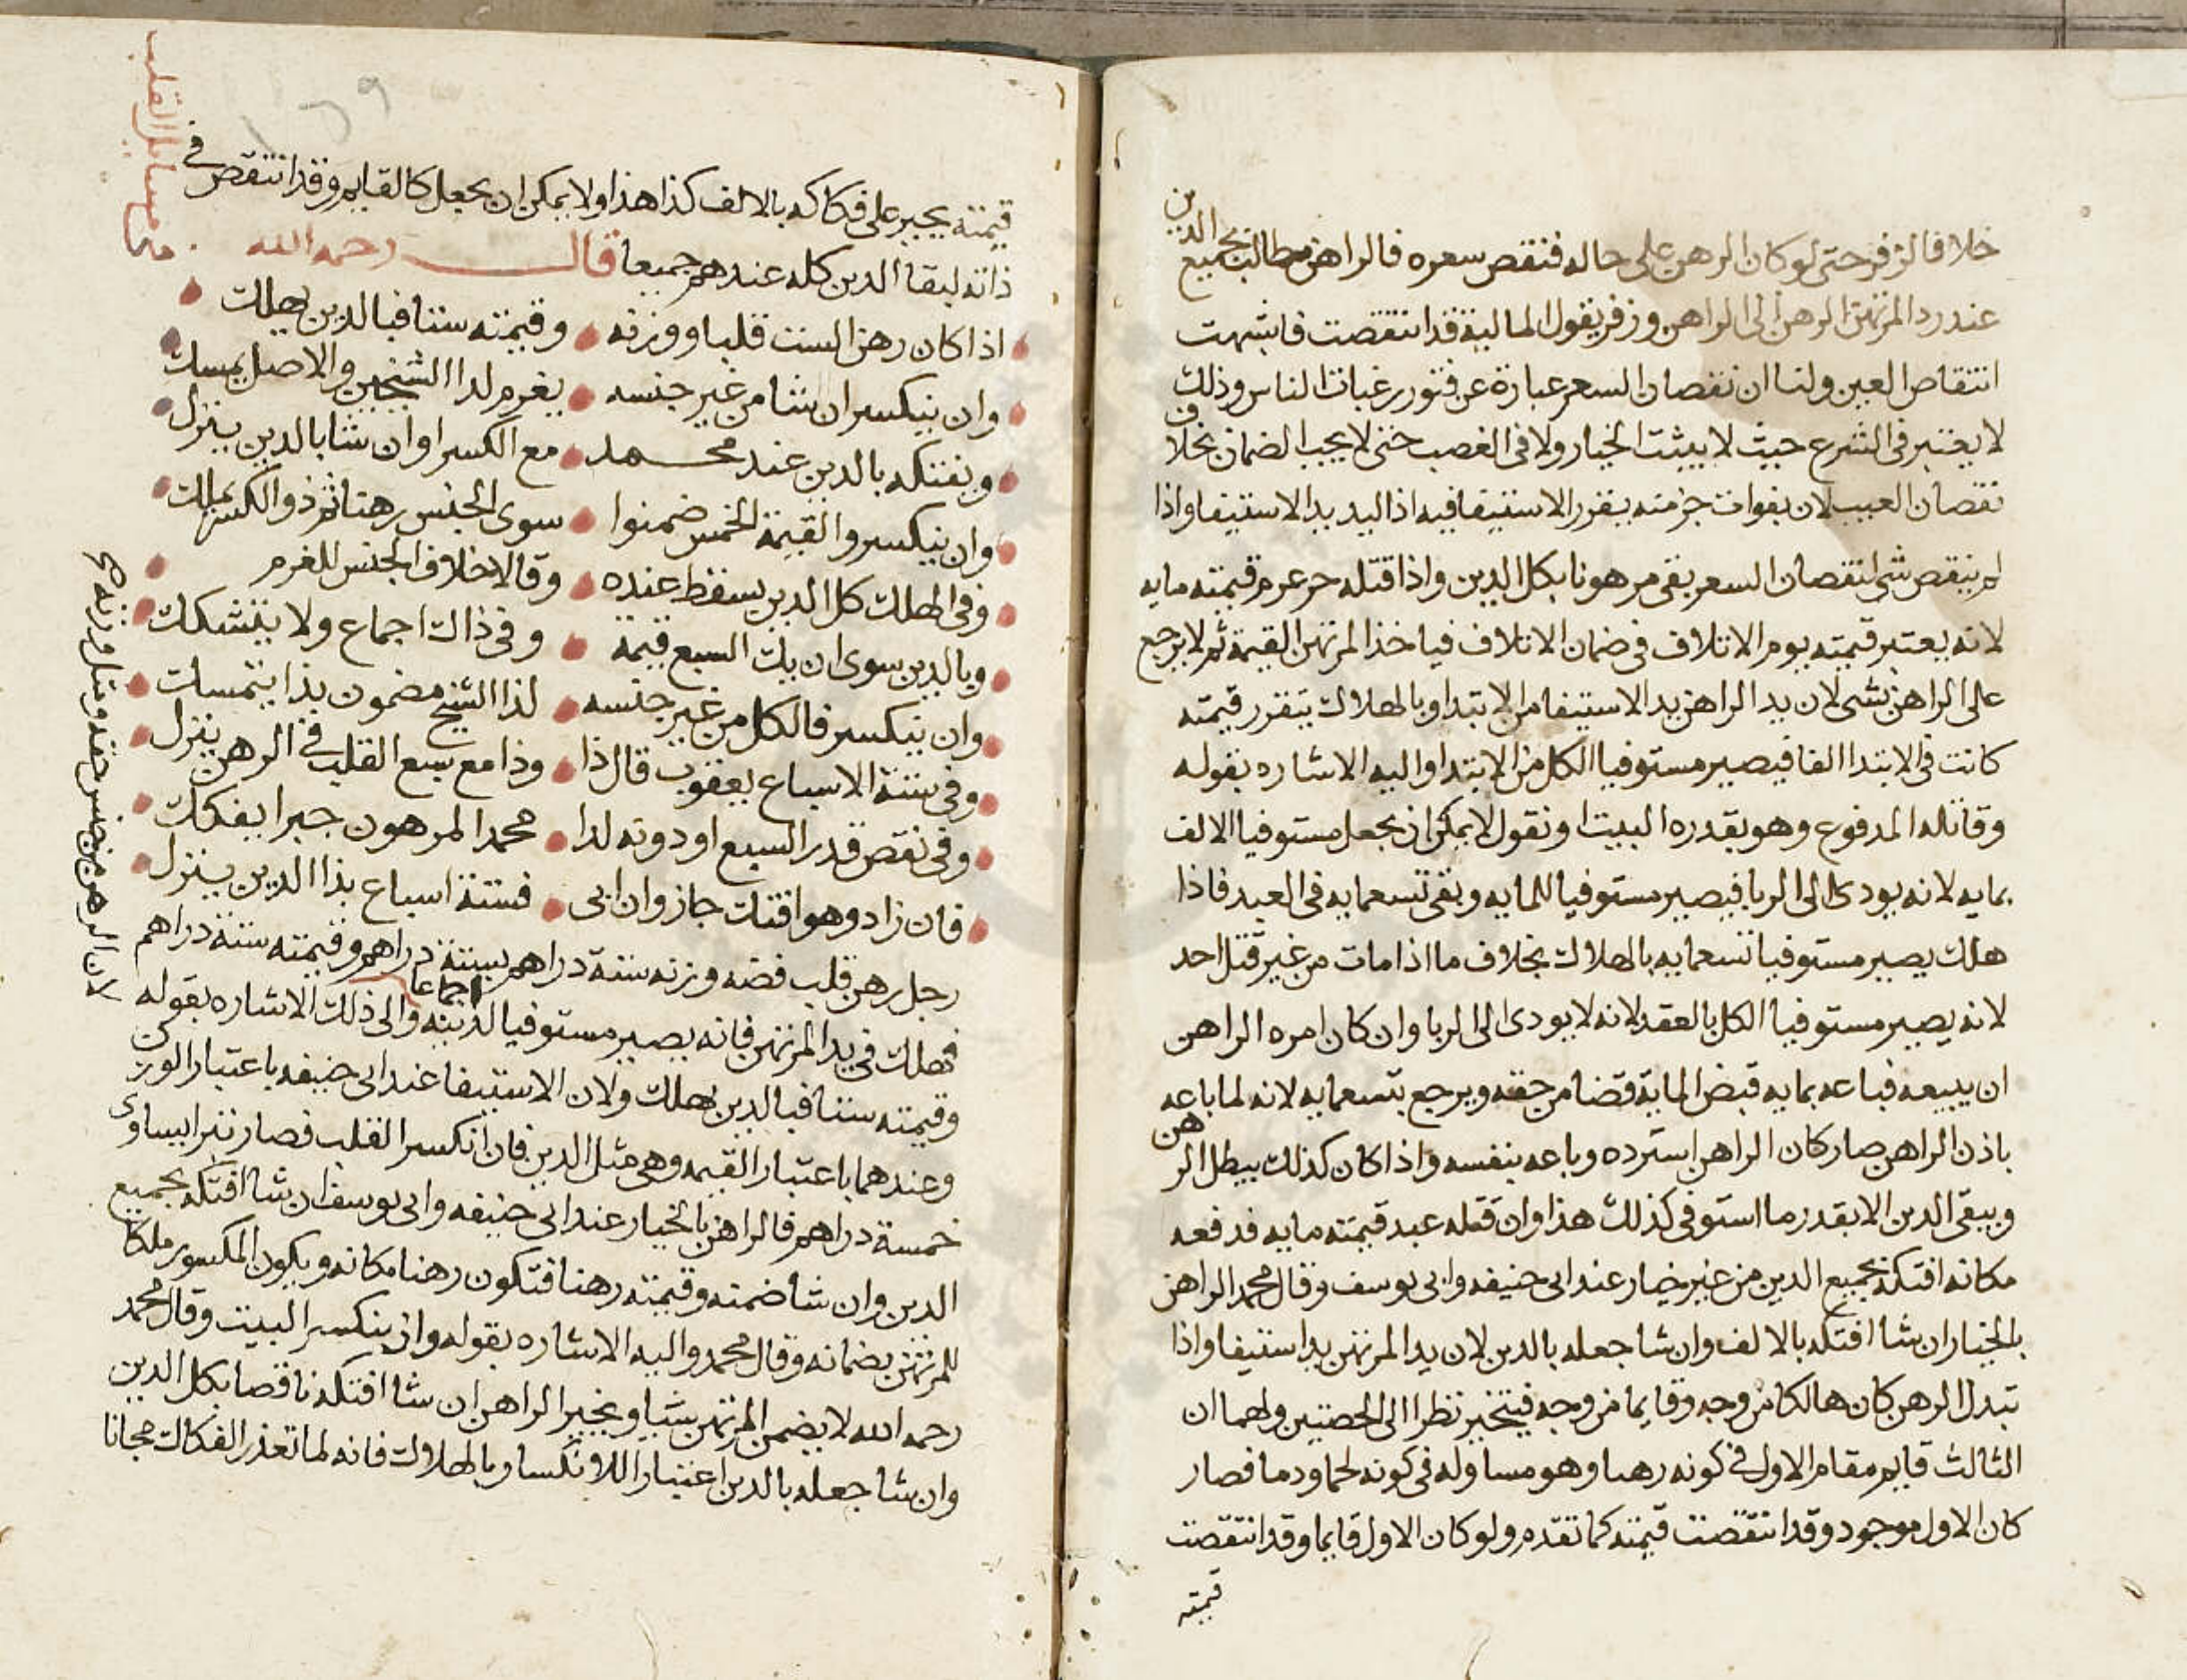 خلافا لزفر حتى لو كان الرهن على حاله فنقص سعره فالراهن مطالب بجميع الدين
عند رد المرتهن الرهن الى الراهن وزفر يقول المالية قد انتقصت فاشبهت
انتقاص العين ولنا ان نقصان السعر عبارة عن فتور رغبات الناس وذلك
لا يعتبر في الشرع حيث لا يثبت الخيار ولا في الغصب حتى لا يجب الضمان بخلاف
نقصان العيب لان بفوات جزمنه يتقرر الاستيفا فيه اذ اليد يد الاستيفا واذا
لم ينقص شي لنقصان السعر بقي مرهونا بكل الدين واذا قتله حر غرم قيمته مايه
لانه يعتبر قيمته يوم الاتلاف في ضمان الاتلاف فياخذ المرتهن القيمة ثم لا يرجع
على الراهن بشي لان يد الراهن يد الاستيفا من الابتدا وبالهلاك يتقرر قيمته
كانت في الابتدا الفا فيصير مستوفيا الكل من الابتدا واليه الاشاره بقوله
وقاتله المدفوع وهو بقدره البيت او نقول لا يمكن ان يجعل مستوفيا الالف
بمايه لانه يودى الى الربا فيصير مستوفيا للمايه وبقى تسعمايه في العبد فاذا
هلك يصير مستوفيا تسعمايه بالهلاك بخلاف ما اذا مات من غير قتل احد
لانه يصير مستوفيا الكل بالعقد لانه لا يودى الى الربا وان كان امره الراهن
ان يبيعه فباعه بمايه قبض الماية قضا من حقه ويرجع بتسعمايه لانه لما باعه
باذن الراهن صار كان الراهن استرده وباعه بنفسه واذا كان كذلك يبطل الرهن
ويبقى الدين الا بقدر ما استوفى كذلك هذا وان قتله عبد قيمته مايه فدفعه
مكانه افتكه بجميع الدين من غير خيار عند ابي حنيفه وابي يوسف وقال محمد الراهن
بالخيار ان شا افتكه بالالف وان شا جعله بالدين لان يد المرتهن يد استيفا واذا
تبدل الرهن كان هالكا من وجه وقايما من وجه فيتخير نظرا الى الجهتين ولهما ان
الثالث قايم مقام الاول في كونه رهنا وهو مساو له في كونه لحما ودما فصار
كان الاول موجود وقد انتقصت قيمته كما تقدم ولو كان الاول قايما وقد انتقصت
قيمته
قيمته يجبر على فكاكه بالالف كذا هذا ولا يمكن ان يجعل كالقايم وقد انتقص في
ذاته لبقا الدين كله عندهم جميعا قال رحمه الله
مسايل القلب
اذا كان رهن الست قلبا ووزنه وقيمته ستا فبالدين يهلك
وان ينكسر ان شا من غير جنسه يغرم لدا الشيخين والاصل يمسك
ويفتكه بالدين عند محمد مع الكسر او ان شا بالدين ينزل
وان ينكسر والقيمة الخمس ضمنوا سوى الجنس رهنا ثم ذو الكسر يملك
وفي الهلك كل الدين يسقط عنده وقالا خلاف الجنس للغرم
وبالدين سوى ان يك السبع قيمة وفي ذاك اجماع ولا يتشكك
وان ينكسر فالكل من غير جنسه لذا الشيخ مضمون بذا يتمسك
وفي ستة الاسباع يعقوب قال ذا وذا مع سبع القلب في الرهن ينزل
وفي نقص قدر السبع او دونه لدا محمد المرهون جبرا يفكك
فان زاد وهو افتك جاز وان ابى فستة اسباع بذا الدين ينزل
رجل رهن قلب فضه وزنه ستة دراهم بستة دراهم وقيمته ستة دراهم
فهلك في يد المرتهن فانه يصير مستوفيا لدينه اجماعا والى ذلك الاشاره بقوله
وقيمته ستا فبالدين يهلك ولان الاستيفا عند ابي حنيفه باعتبار الوزن
وعندهما باعتبار القيمه وهي مثل الدين فان انكسر القلب فصار تبرا يساوى
خمسة دراهم فالراهن بالخيار عند ابي حنيفه وابي يوسف ان شا افتكه بجميع
الدين وان شا ضمنه وقيمته رهنا فتكون رهنا مكانه ويكون المكسور ملكا
للمرتهن بضمانه وقال محمد واليه الاشاره بقوله وان ينكسر البيت وقال محمد
رحمه الله لا يضمن المرتهن شيا ويخير الراهن ان شا افتكه ناقصا بكل الدين
وان شا جعله بالدين اعتبارا للانكسار بالهلاك فانه لما تعذر الفكاك مجانا
لان الرهن من جنس حقه ومثل وزنه